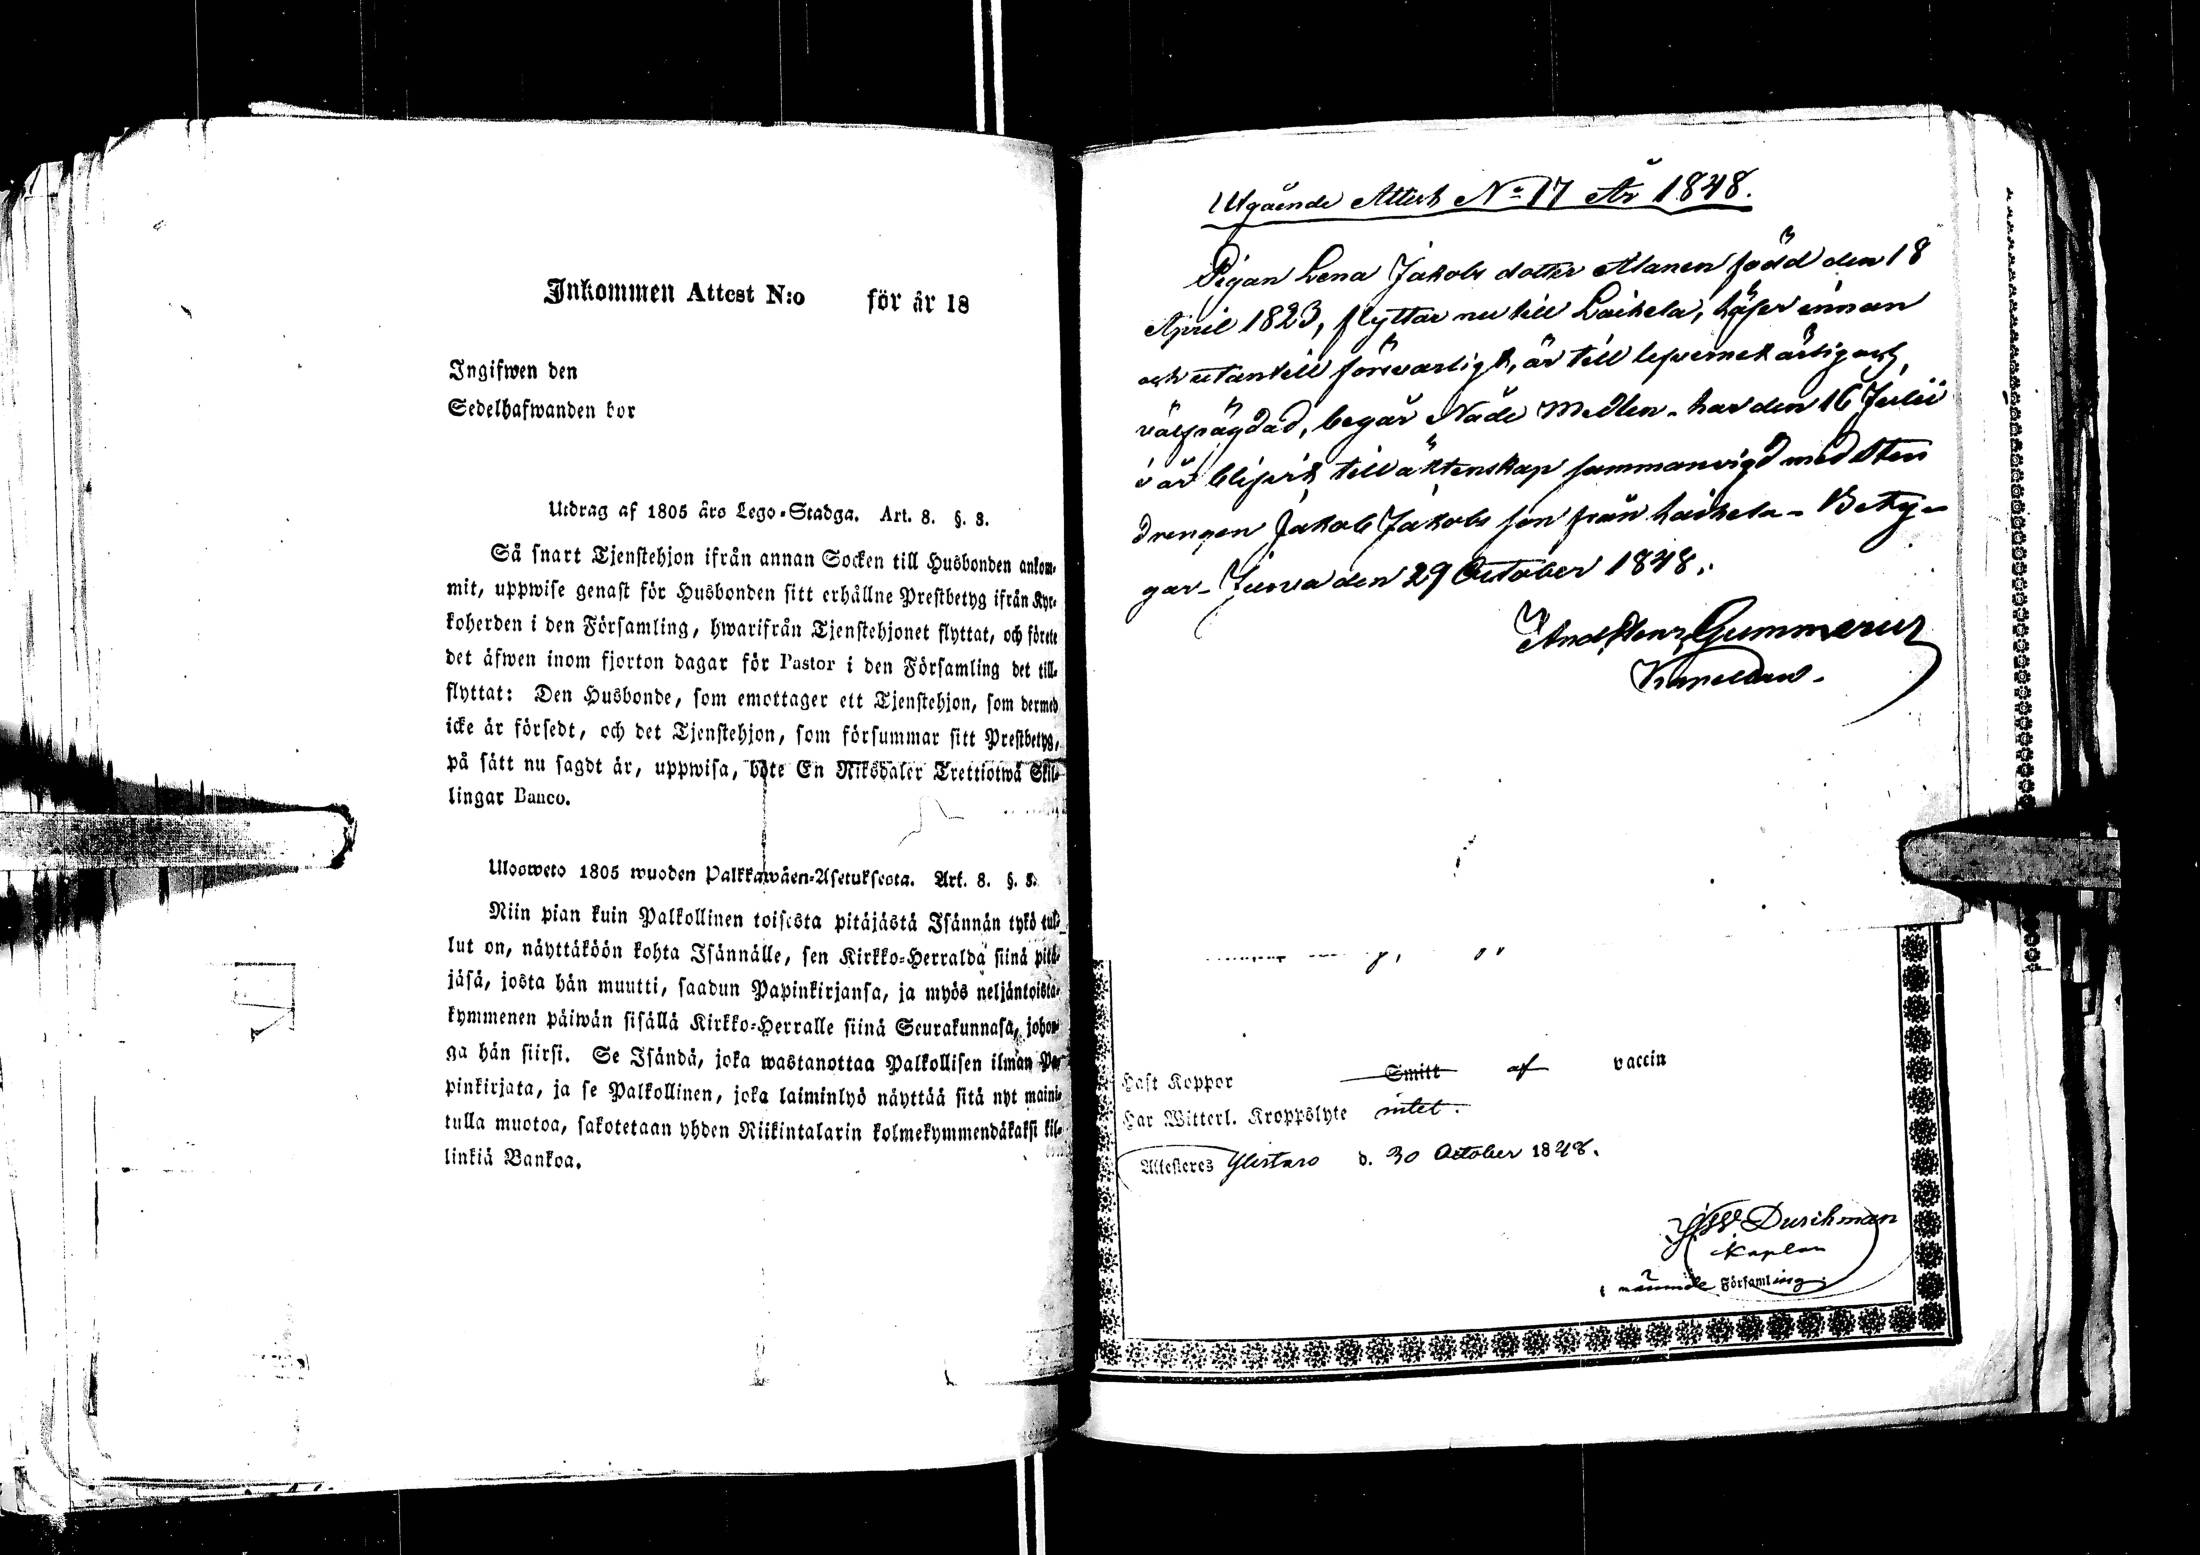 Inkommen Attest N:o för år 18
Ingifwen den
Sedelhafwanden bor
Utdrag af 1805 års Lego-Stadga. Art. 8. §. 3.
Så snart Tjenstehjon ifrån annan Socken till Husbonden ankom-
mit, uppwise genast för Husbonden sitt erhållne Prestbetyg ifrån Kyr-
koherden i den Församling, hwarifrån Tjenstehjonet flyttat, och förete
det äfwen inom fjorton dagar för Pastor i den Församling det till-
flyttat: Den Husbonde, som emottager ett Tjenstehjon, som dermed
icke är försedt, och det Tjenstehjon, som försummar sitt Prestbetyg,
på sätt nu sagdt är, uppwisa, böte En Riksdaler Trettiotwå Skil-
lingar Banco.
Ulosweto 1805 wuoden Palkkawäen-Asetuksesta. Art. 8. §. 3.
Niin pian kuin Palkollinen toisesta pitäjästä Isännän tykö tul-
lut on, näyttäköön kohta Isännälle, sen Kirkko-Herralda siinä pitä-
jäsä, josta hän muutti, saadun Papinkirjansa, ja myös neljäntoista-
kymmenen päiwän sisällä Kirkko-Herralle siinä Seurakunnasa, johon-
ga hän siirsi. Se Isändä, joka wastanottaa Palkollisen ilman Pa-
pinkirjata, ja se Palkollinen, joka laiminlyö näyttää sitä nyt maini-
tulla muotoa, sakotetaan yhden Riikintalarin kolmekymmendäkaksi kil-
linkiä Bankoa.
Utgående Attest No 17 År 1848.
Pigan Lena Jakobs dotter Alanen född den 18
April 1823, flyttar nu till Laihela, läser innan
och utantill försvarligt, är till lefvernet ärlig och
välfrägdad, begår Nåde Medlen - har den 16 Julii
i år blifvit till äktenskap sammanvigd med
drengen Jakob Jakobs son från Laihela - Bety-
gar - Jurva den 29 October 1848.
Gummerus
Kapellan.
Haft Koppor Smitt af vaccin
Har Witterl. Kroppslyte intet.
Attesteres Ylistaro d. 30 October 1848.
Durchman
Kaplan
i nämnde Församling.